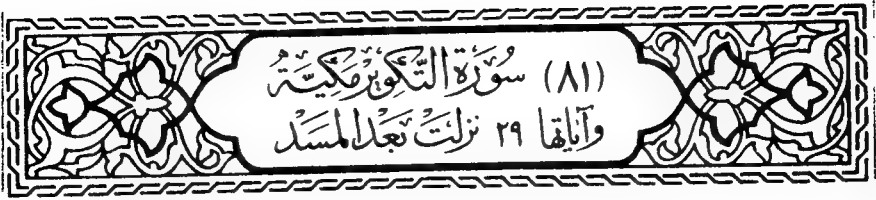 (٨١) سُورَة التَّكوِير مَكِيَّةٌ
وآياتها ٢٩ نزلتْ بَعْد المسَد